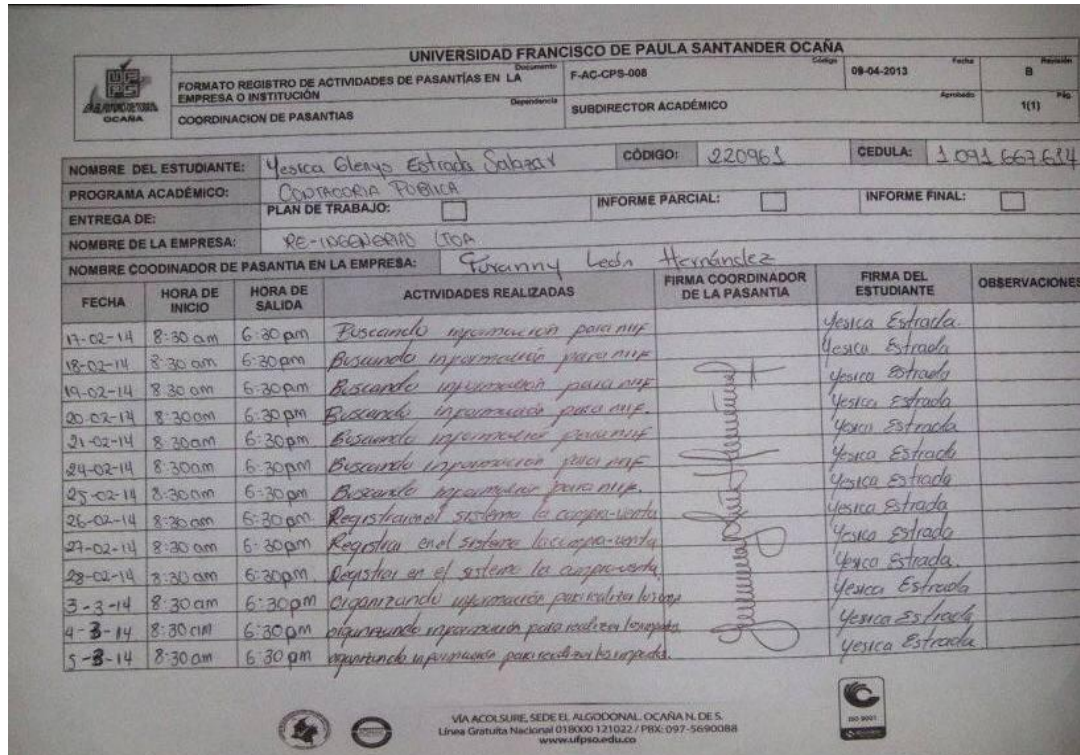 UNIVERSIDAD FRANCISCO DE PAULA SANTANDER OCAÑA
UFPS
OCAÑA
Documento Código Fecha Revisión
FORMATO REGISTRO DE ACTIVIDADES DE PASANTÍAS EN LA EMPRESA O INSTITUCIÓN F-AC-CPS-008 09-04-2013 B
Dependencia Aprobado Pág.
COORDINACION DE PASANTIAS SUBDIRECTOR ACADÉMICO 1(1)
NOMBRE DEL ESTUDIANTE: Yesica Glenys Estrada Salazar CÓDIGO: 220961 CEDULA: 1 091 667 634
PROGRAMA ACADÉMICO: CONTADORIA PUBLICA
ENTREGA DE: PLAN DE TRABAJO: INFORME PARCIAL: INFORME FINAL:
NOMBRE DE LA EMPRESA: RE-INGENERIAS LTDA
NOMBRE COODINADOR DE PASANTIA EN LA EMPRESA: León Hernández
FECHA HORA DE INICIO HORA DE SALIDA ACTIVIDADES REALIZADAS FIRMA COORDINADOR DE LA PASANTIA FIRMA DEL ESTUDIANTE OBSERVACIONES
17-02-14 8:30 am 6:30 pm Buscando información para niif Yesica Estrada.
18-02-14 8:30 am 6:30 pm Buscando información para niif Yesica Estrada
19-02-14 8:30 am 6:30 pm Buscando información para niif Yesica Estrada
20-02-14 8:30 am 6:30 pm Buscando información para niif. Yesica Estrada
21-02-14 8:30 am 6:30 pm Buscando información para niif Yesica Estrada
24-02-14 8:30 am 6:30 pm Buscando información para niif Yesica Estrada
25-02-14 8:30 am 6:30 pm Buscando información para niif. Yesica Estrada
26-02-14 8:30 am 6:30 pm. Registrar en el sistema la compra-venta Yesica Estrada
27-02-14 8:30 am 6:30 pm Registrar en el sistema la compra-venta Yesica Estrada
28-02-14 8:30 am 6:30 pm. Registrar en el sistema la compra-venta Yesica Estrada.
3-3-14 8:30 am 6:30 pm organizando información para realizar los Yesica Estrada
4-3-14 8:30 am 6:30 pm organizando información para realizar los Yesica Estrada
5-3-14 8:30 am 6:30 pm organizando información para realizar los Yesica Estrada
VÍA ACOLSURE, SEDE EL ALGODONAL. OCAÑA N. DE S.
Línea Gratuita Nacional 018000 121022 / PBX: 097-5690088
www.ufpso.edu.co
ISO 9001